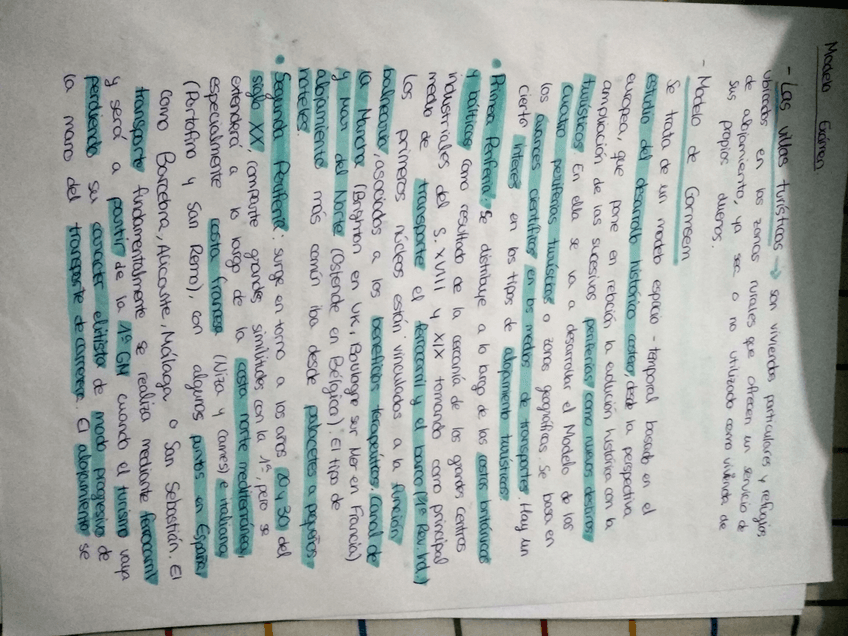 Modelo Exámen
- Las villas turísticas → son viviendas particulares y refugios
ubicados en las zonas rurales que ofrecen un servicio de
de alojamiento, ya sea o no utilizado como vivienda de
sus propios dueños.
- Modelo de Gormsem
Se trata de un modelo espacio-temporal basado en el
estudio del desarrollo histórico costero desde la perspectiva
europea, que pone en relación la evolución histórica con la
ampliación de las sucesivas periferias como nuevos destinos
turísticos. En ella se va a desarrollar el Modelo de las
cuatro periferias turísticas o zonas geográficas. Se basa en
los avances científicos en los medios de transportes. Hay un
cierto interés en los tipos de alojamiento turísticos.
• Primera Periferia. Se distribuye a lo largo de las costas británicas
y bálticas como resultado de la cercanía de los grandes centros
industriales del S. XVIII y XIX tomando como principal
medio de transporte el ferrocarril y el barco (1ª Rev. Ind.)
Los primeros núcleos están vinculados a la función
balnearia, asociados a los beneficios terapéuticos. Canal de
la Mancha (Brighton en UK, Boulogne sur Mer en Francia)
y Mar del Norte (Ostende en Bélgica). El tipo de
alojamiento más común iba desde palacetes a pequeños
hoteles.
• Segunda Periferia: surge en torno a los años 20 y 30 del
siglo XX, comparte grandes similitudes con la 1ª, pero se
extenderá a lo largo de la costa norte mediterránea,
especialmente costa francesa (Niza y Cannes) e italiana
(Portofino y San Remo), con algunos puntos en España
como Barcelona, Alicante, Málaga o San Sebastián. El
transporte fundamentalmente se realiza mediante ferrocarril
y será a partir de la 1ª GM cuando el turismo vaya
perdiendo su carácter elitista de modo progresivo de
la mano del transporte de carretera. El alojamiento se